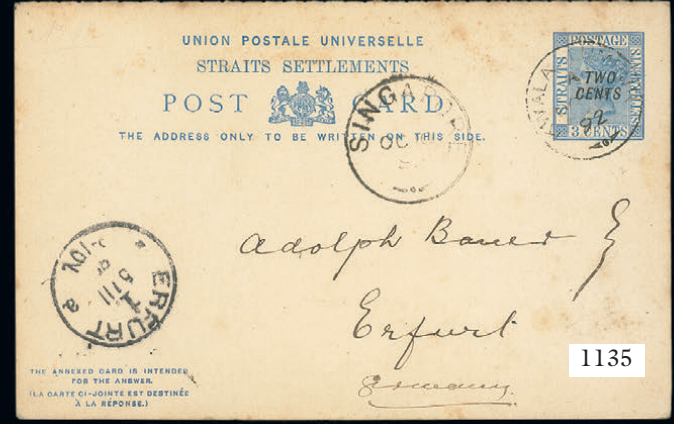 UNION POSTALE UNIVERSELLE
STRAITS SETTLEMENTS
POST CARD
THE ADDRESS ONLY TO BE WRITTEN ON THIS SIDE.
POSTAGE
STRAITS
TWO
CENTS
3 CENTS
92
SINGAPORE
OC
Adolph Bauer
Erfurt
Germany
ERFURT
a
1135
THE ANNEXED CARD IS INTENDED
FOR THE ANSWER.
(LA CARTE CI-JOINTE EST DESTINÉE
À LA RÉPONSE.)